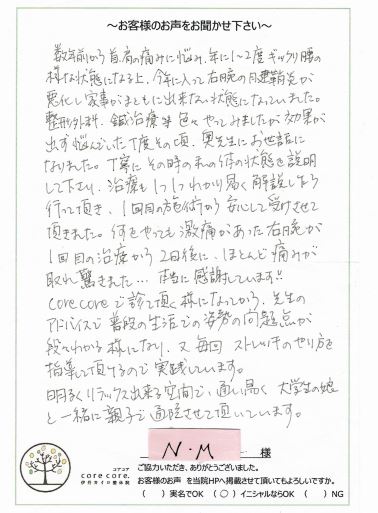 ～お客様のお声をお聞かせ下さい～
数年前から首、肩の痛みに悩み、年に1～2度ギックリ腰の
様な状態になる上、今年に入って右腕の腱鞘炎が
悪化し家事がまともに出来ない状態になっていました。
整形外科、鍼治療等色々やってみましたが効果が
出ず悩んでいた丁度その頃、奥先生にお世話に
なりました。丁寧にその時の私の体の状態を説明
して下さり、治療も1つ1つわかり易く解説しながら
行って頂き、1回目の施術から安心して受けさせて
頂きました。何をやっても激痛があった右腕が
1回目の治療から2日後に、ほとんど痛みが
取れ驚きました…本当に感謝しています!!
corecoreで診て頂く様になってから、先生の
アドバイスで普段の生活での姿勢の問題点が
段々わかる様になり、又毎回ストレッチのやり方を
指導して頂けるので実践しています。
明るくリラックス出来る空間で、通い易く大学生の娘
と一緒に親子で通院させて頂いています。
N・M 様
コアコア
core core.
伊丹カイロ整体院
ご協力いただき、ありがとうございました。
お客様のお声 を当院HPへ掲載させて頂いてもよろしいですか。
( )実名でOK (○)イニシャルならOK ( )NG